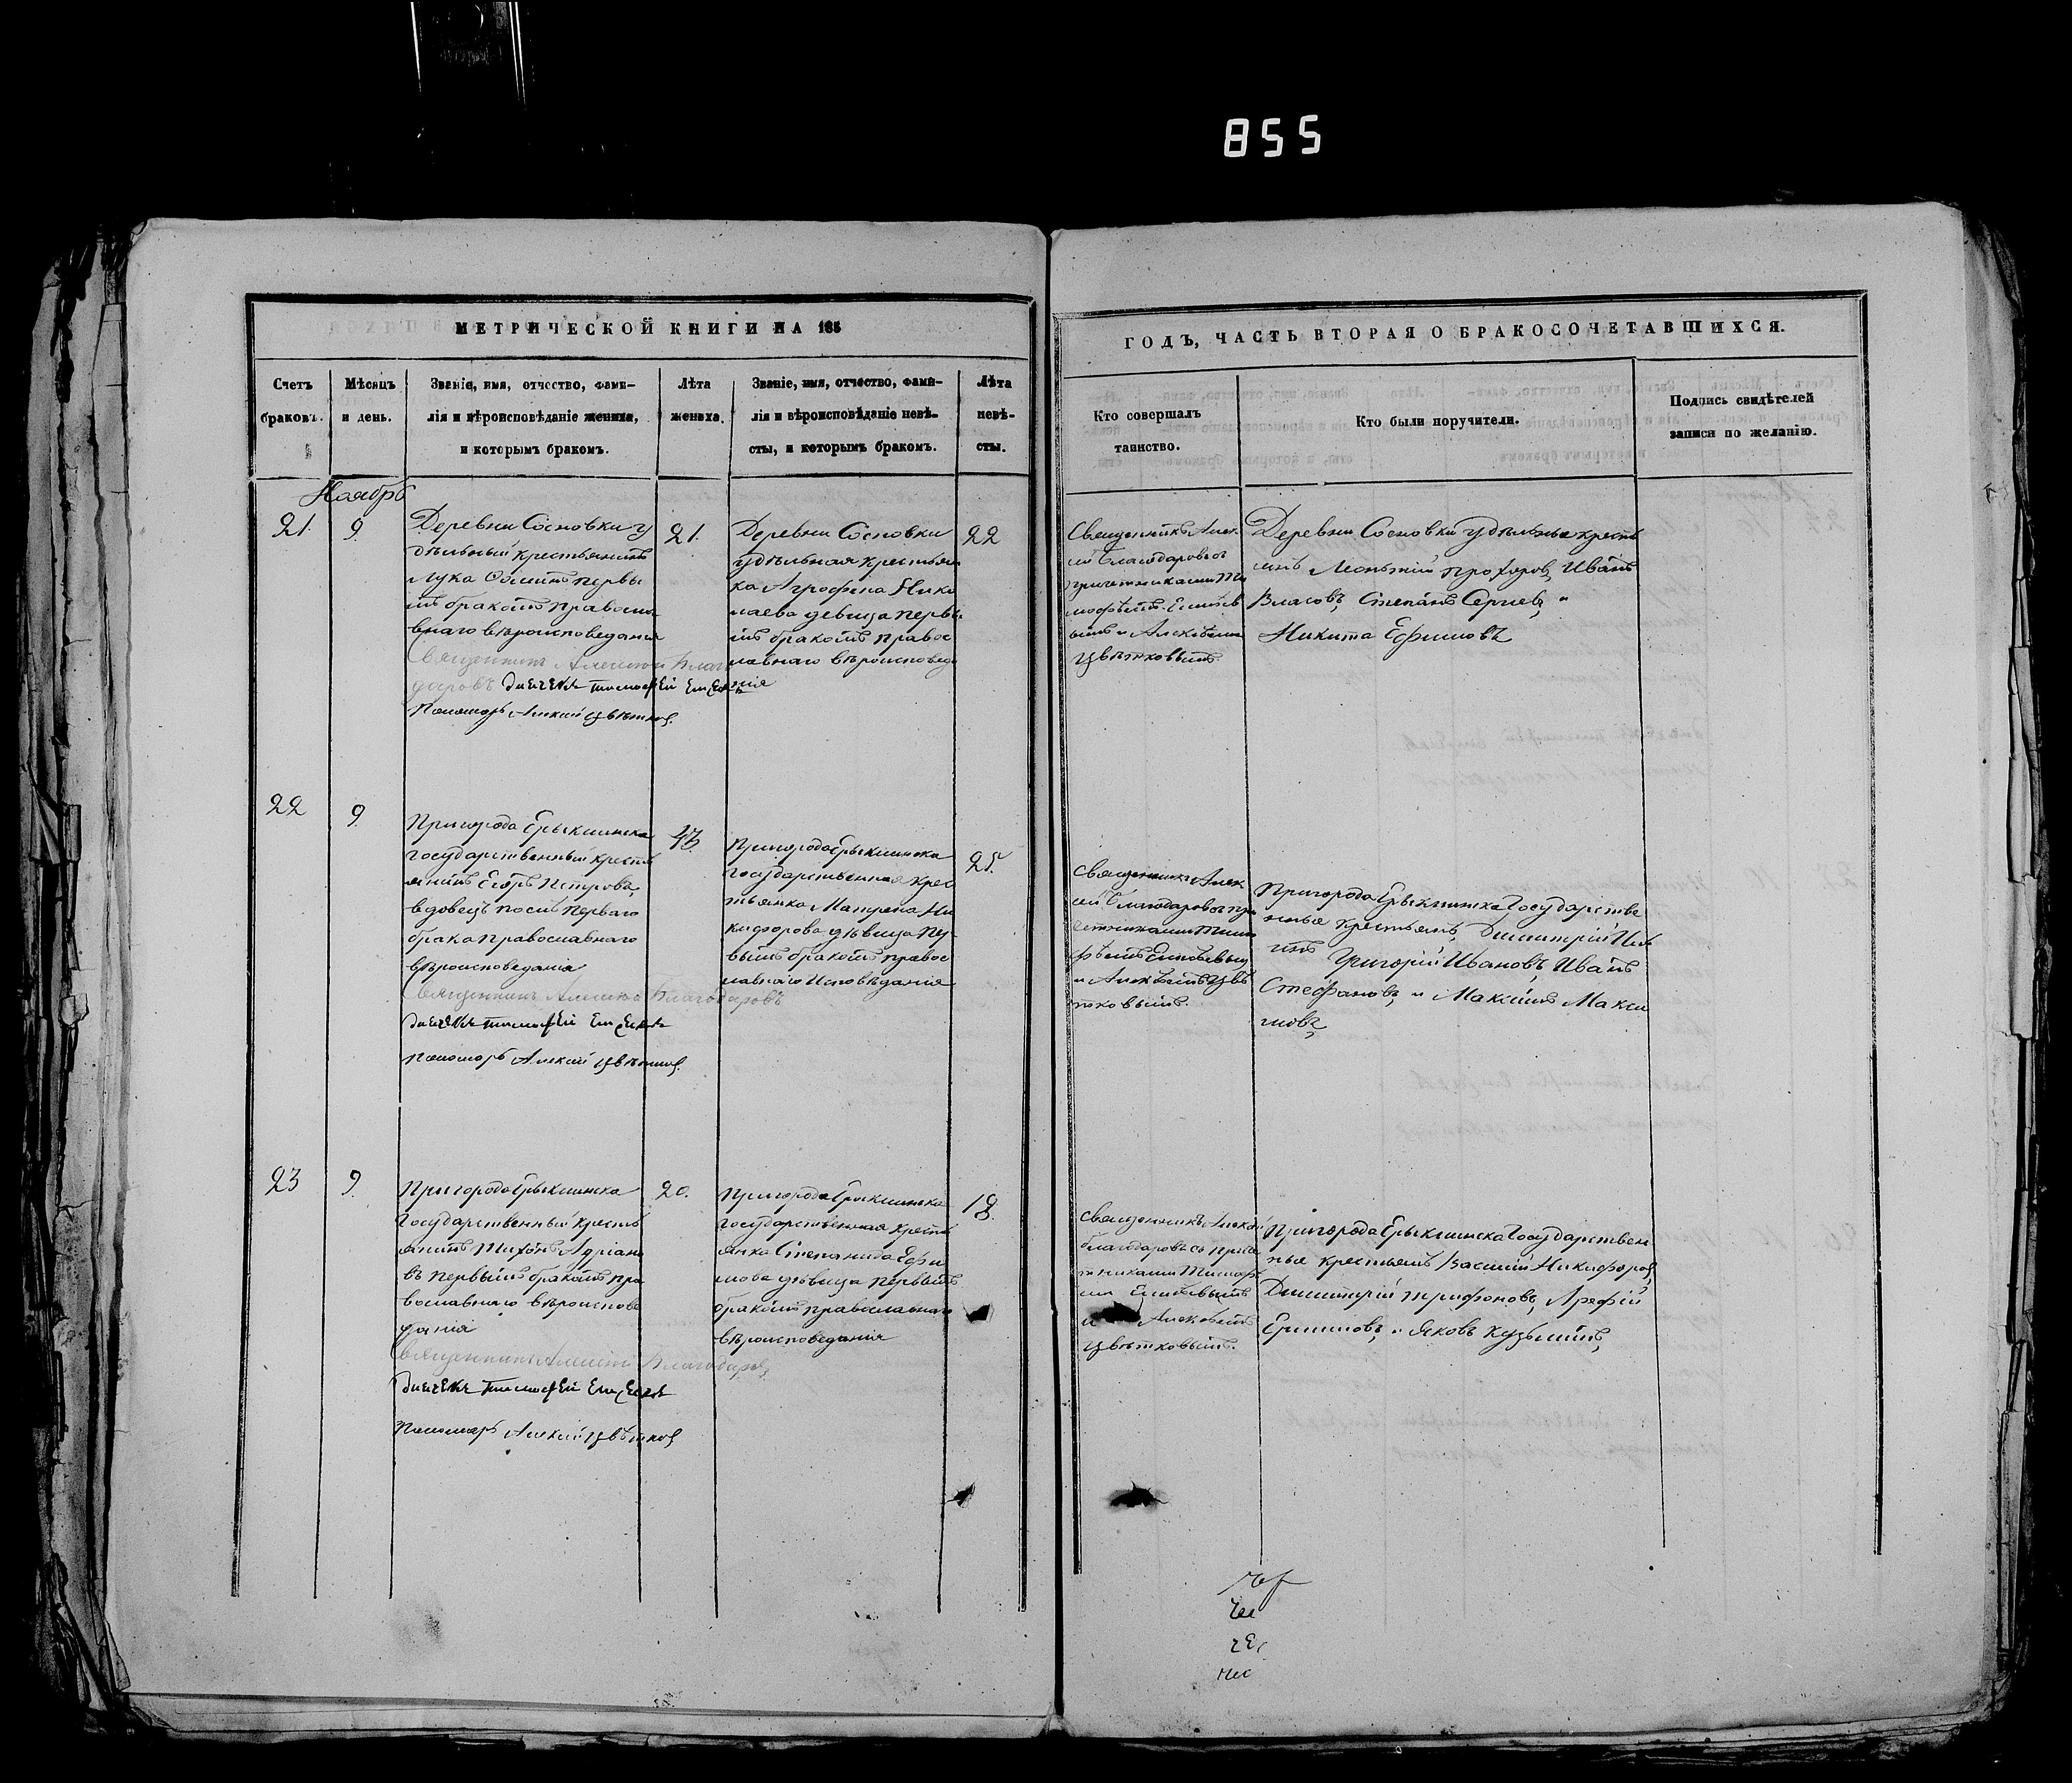 855
МЕТРИЧЕСКОЙ КНИГИ НА 185
Счетъ браковъ.
Мѣсяцъ и день.
Званіе, имя, отчество, фами-
лія и вѣроисповѣданіе жениха,
и которымъ бракомъ.
Лѣта жениха.
Званіе, имя, отчество, фами-
лія и вѣроисповѣданіе невѣ-
сты, и которымъ бракомъ.
Лѣта невѣ-
сты.
ГОДЪ, ЧАСТЬ ВТОРАЯ О БРАКОСОЧЕТАВШИХСЯ.
Кто совершалъ
таинство.
Кто были поручители.
Подпись свидѣтелей
записи по желанію.
Ноябрь
21.
9.
Деревни Сосновки у
дѣльный крестьянинъ
Лука первы
мъ бракомъ правосла
внаго вѣроисповеданія
Священникъ Алексей Благо
даровъ дьячекъ тимофей
Пономарь Алексий Цвѣтков
21.
Деревни Сосновки
удѣльная крестьян
ка Агрофена Нико
лаева девица первы
мъ бракомъ правос
лавнаго вѣроисповед
нія
22
Священникъ Алек
ий Благодаровъ съ
причетниками Ти
мофѣемъ
ымъ и Алексѣемъ
Цвѣтковымъ.
Деревни Сосновки удѣльные кресть
янъ Леонтий Прохоровъ, Иванъ
Власовъ, Степанъ Сергиевъ, и
Никита Ефимовъ
22
9.
Пригорода Ерыклинска
государственный кресть
янинъ Егоръ Петровъ,
вдовецъ послѣ перваго
брака православнаго
вѣроисповеданія
Священникъ Алексей Благодаровъ
дьячекъ тимофей
Пономарь Алексий Цвѣтков
43.
Пригорода Ерыклинска
государственная крес
тьянка Матрена Ни
кифорова дѣвица пер
вымъ бракомъ правос
лавнаго Исповѣданія
25.
Священникъ Алек
ий Благодаровъ съ при
четниками Тимо
фѣемъ
и Алексѣемъ Цвѣ
тковымъ.
Пригорода Ерыклинска Государстве
нные крестьянъ, Димитрій
Григорій Ивановъ, Иванъ
Стефановъ, и Максимъ Макси
мовъ,
23
9.
Пригорода Ерыклинска
Государственный кресть
янинъ Тихонъ Адріано
въ первымъ бракомъ пра
вославнаго вѣроиспове
данія
Священникъ Алексей Благодаровъ
дьячекъ тимофей
Пономарь Алексий Цвѣтков
20.
Пригорода Ерыклинска
государственная кресть
янка Степанида Ефи
мова дѣвица первымъ
бракомъ православнаго
вѣроисповеданія
18.
Священникъ Алексий
Благодаровъ съ приче
тниками Тимофѣ
и Алексѣемъ
Цвѣтковымъ.
Пригорода Ерыклинска Государствен
ные крестьянъ Василий Никифоровъ,
Димитрій Трифоновъ, Арефій
Ермиловъ, и Яковъ Кузьминъ,